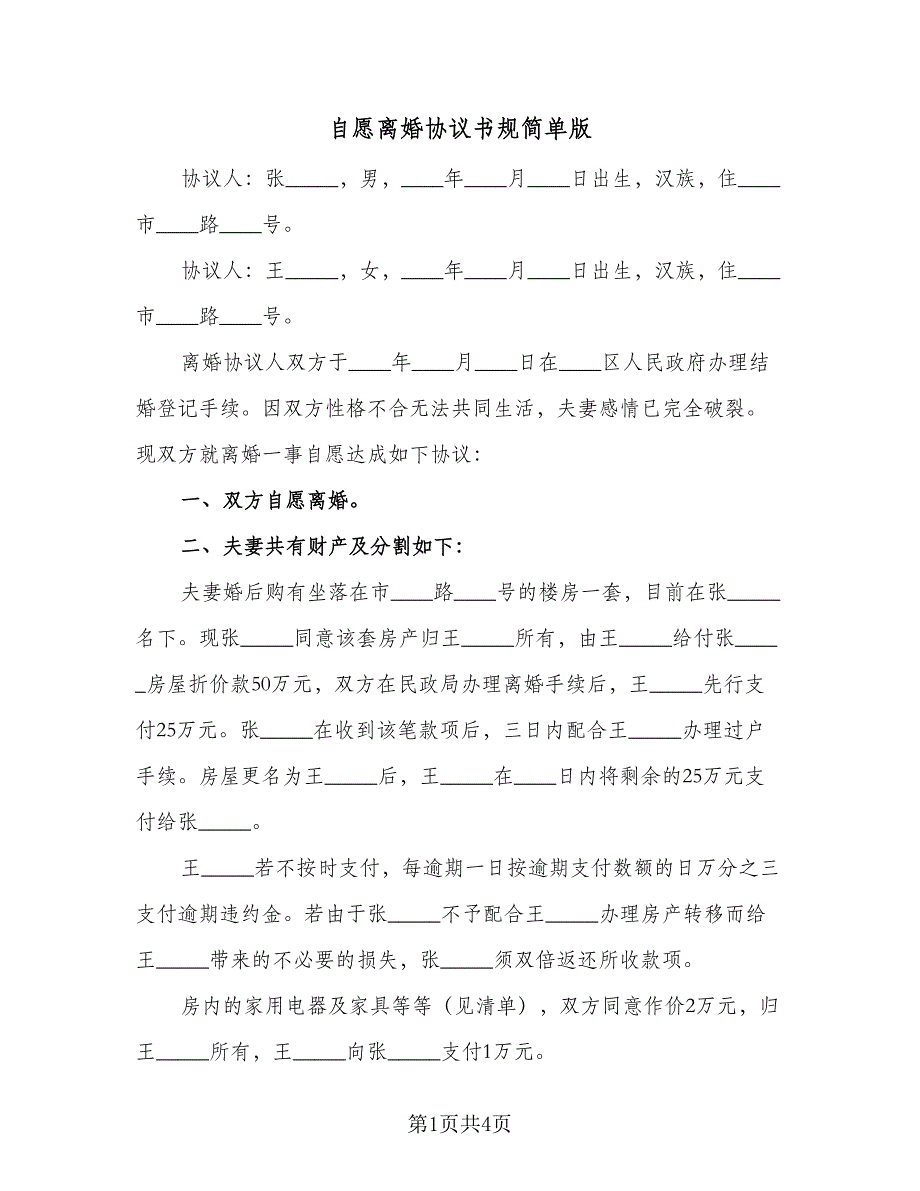 自愿离婚协议书规简单版
协议人：张_____，男，____年____月____日出生，汉族，住____
市____路____号。
协议人：王_____，女，____年____月____日出生，汉族，住____
市____路____号。
离婚协议人双方于____年____月____日在____区人民政府办理结
婚登记手续。因双方性格不合无法共同生活，夫妻感情已完全破裂。
现双方就离婚一事自愿达成如下协议：
一、双方自愿离婚。
二、夫妻共有财产及分割如下：
夫妻婚后购有坐落在市____路____号的楼房一套，目前在张_____
名下。现张_____同意该套房产归王_____所有，由王_____给付张____
_房屋折价款50万元，双方在民政局办理离婚手续后，王_____先行支
付25万元。张_____在收到该笔款项后，三日内配合王_____办理过户
手续。房屋更名为王_____后，王_____在____日内将剩余的25万元支
付给张_____。
王_____若不按时支付，每逾期一日按逾期支付数额的日万分之三
支付逾期违约金。若由于张_____不予配合王_____办理房产转移而给
王_____带来的不必要的损失，张_____须双倍返还所收款项。
房内的家用电器及家具等等（见清单），双方同意作价2万元，归
王_____所有，王_____向张_____支付1万元。
第1页共4页